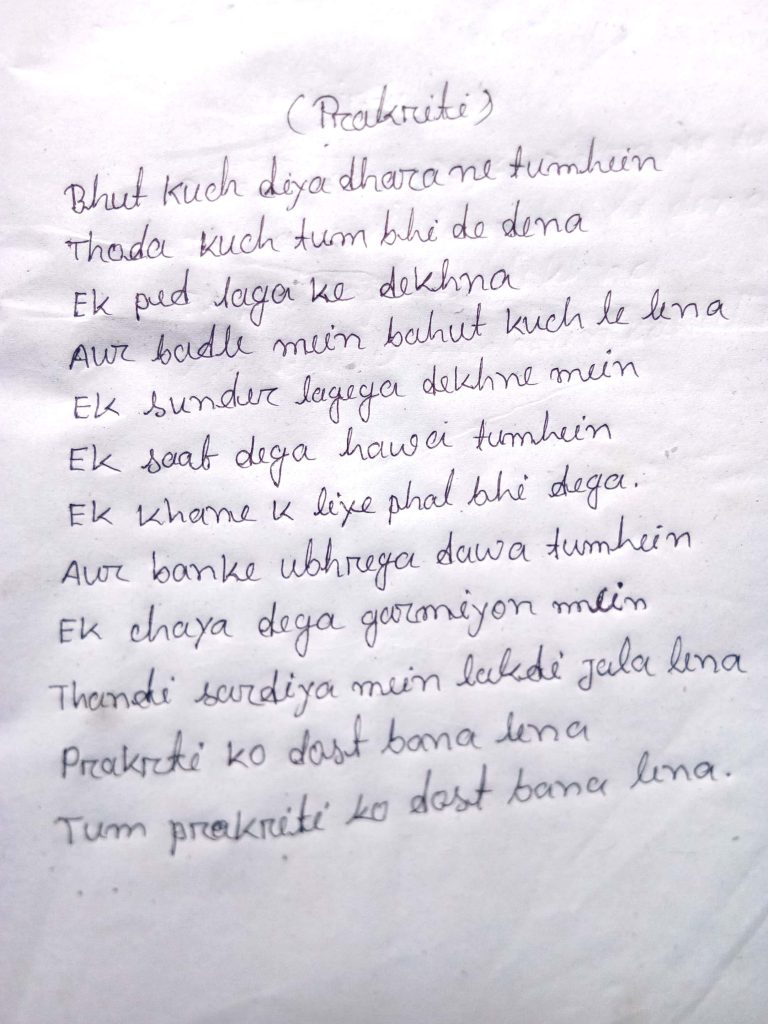 (Prakriti)
Bhut kuch diya dhara ne tumhein
Thoda kuch tum bhi de dena
Ek ped laga ke dekhna
Aur badle mein bahut kuch le lena
Ek sunder lagega dekhne mein
Ek saaf dega hawa tumhein
Ek khane k liye phal bhi dega.
Aur banke ubhrega dawa tumhein
Ek chaya dega garmiyon mein
Thandi sardiya mein lakdi jala lena
Prakrti ko dost bana lena
Tum prakriti ko dost bana lena.